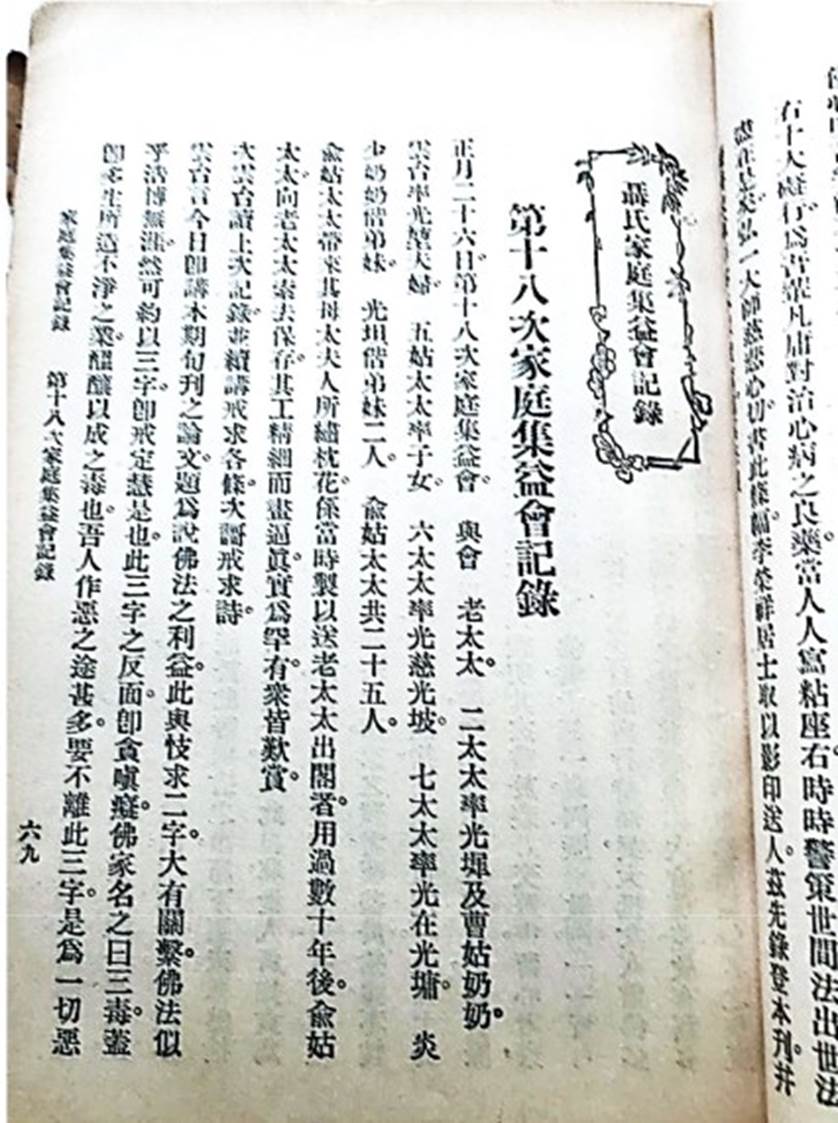 右十大礙行爲吾輩凡庸對治心病之良藥。當人人寫粘座右。時時警策世間法出世法
盡在是矣。弘一大師慈悲心切。書此條幅。李榮祥居士取以影印送人。茲先錄登本刊。幷
聶氏家庭集益會記錄
第十八次家庭集益會記錄
正月二十六日。第十八次家庭集益會。與會 老太太。二太太率光墀及曹姑奶奶。
雲台率光堃夫婦 五姑太太率子女。六太太率光慈光坡。七太太率光在光墉。炎
少奶奶偕弟妹 光垻偕弟妹二人。 俞姑太太共二十五人。
俞姑太太帶來其母太夫人所繡枕花。係當時製以送老太太出閣者。用過數十年後。俞姑
太太向老太太索去保存。其工精細而畫逼眞。實爲罕有。衆皆歎賞。
次雲台讀上次記錄。並續講戒求各條。次謌戒求詩。
雲台言今日卽講本期旬刊之論文。題爲說佛法之利益。此與忮求二字。大有關繫。佛法似
乎浩博無涯。然可約以三字。卽戒定慧是也。此三字之反面。卽貪嗔癡。佛家名之曰三毒。蓋
卽多生所造不淨之業。醞釀以成之毒也。吾人作惡之途甚多。要不離此三字。是爲一切惡
家庭集益會記錄 第十八次家庭集益會記錄
六九